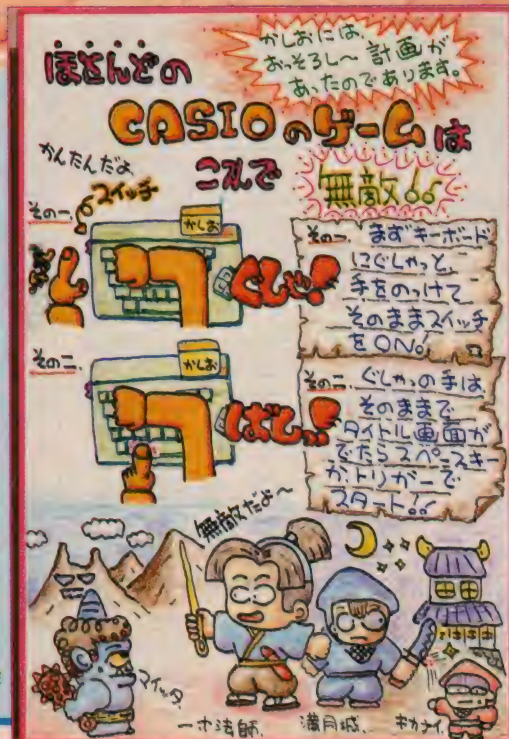 かしおには、
おっそろし〜計画が
あったのであります。
ほとんどの
CASIOのゲームは
これで
無敵!!
かんたんだよ
スイッチ
その一.
かしお
ぐしゃ!
その一. まずキーボード
にぐしゃっと、
手をのっけて
そのままスイッチ
をON!
その二.
かしお
ばしっ!
その二. ぐしゃっの手は、
そのままで
タイトル画面が
でたらスペースキー
か、トリガーで
スタート!!
無敵だよ〜
マイッタ
一寸法師.
満月城.
キカナイ.